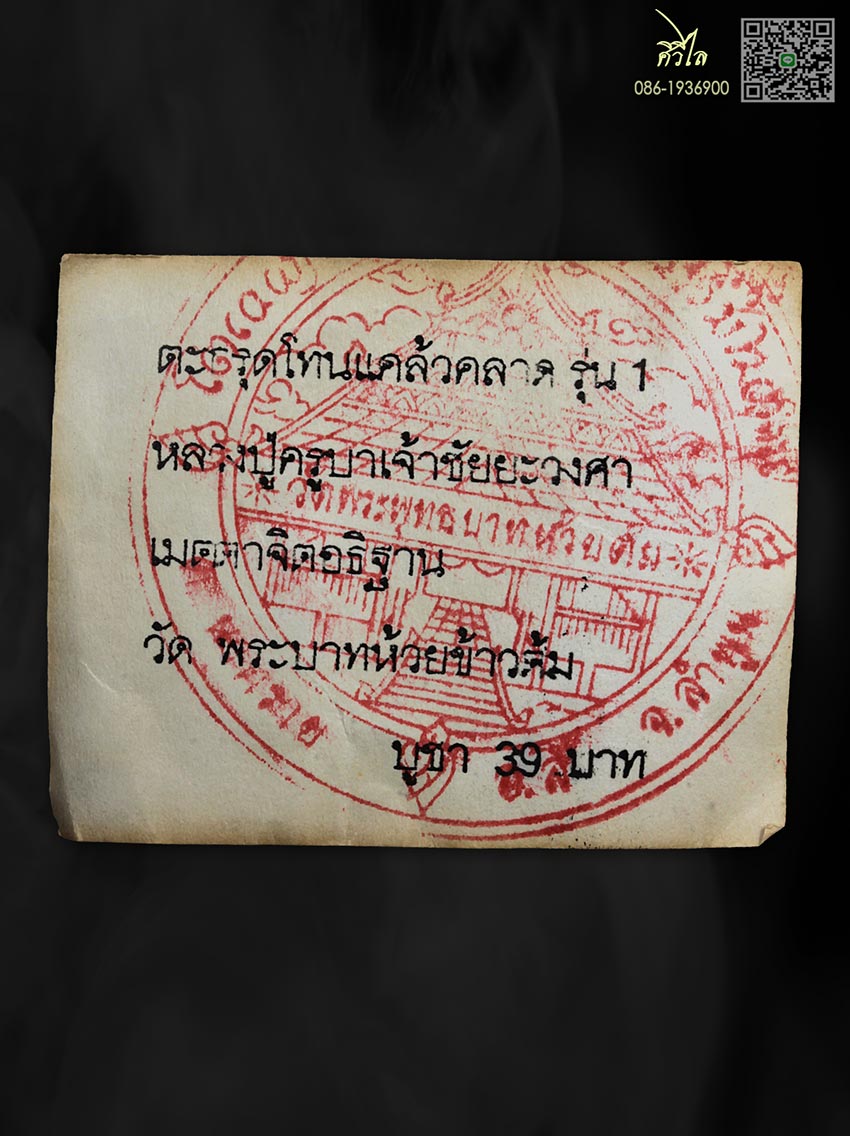 ศิวิไล
086-1936900
ตะกรุดโทนแคล้วคลาด รุ่น 1
หลวงปู่ครูบาเจ้าชัยยะวงศา
วัดพระพุทธบาทห้วยต้ม
เมตตาจิตอธิฐาน
วัด พระบาทห้วยข้าวต้ม
จ.ลำพูน
บูชา 39 บาท
อ.ลี้